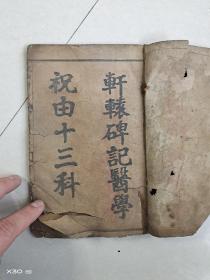 軒轅碑記醫學
祝由十三科
X30